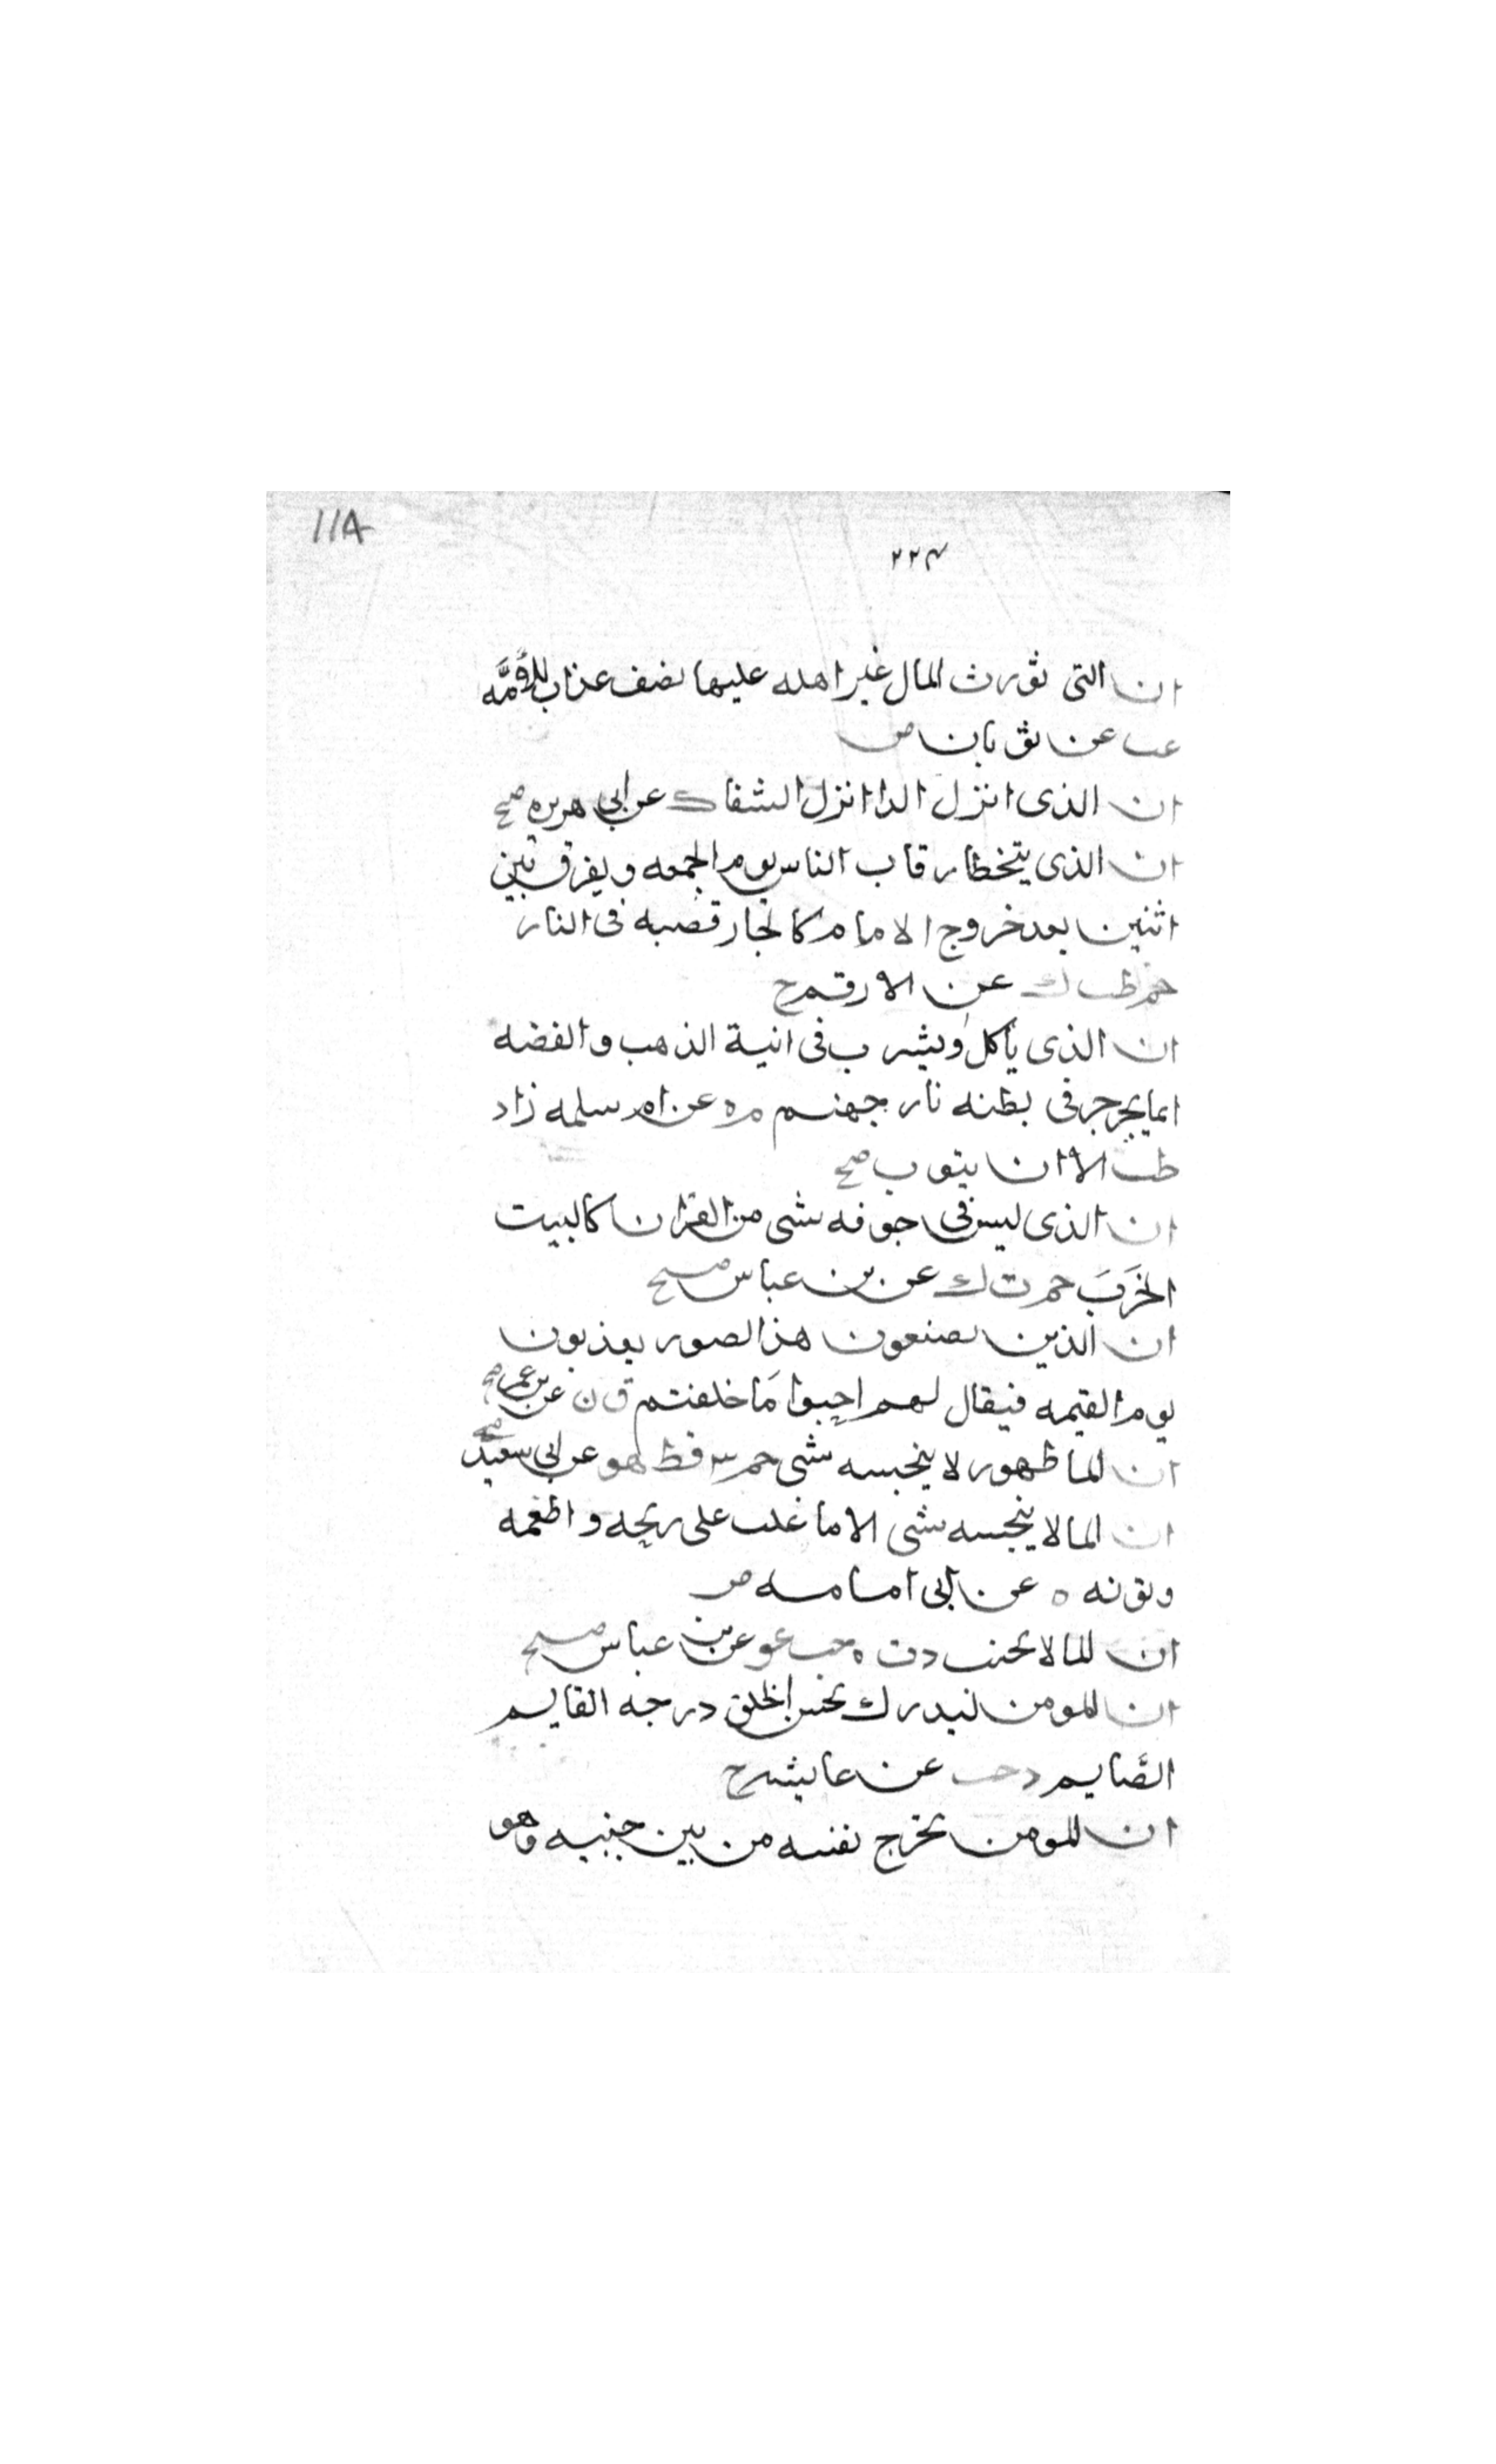 ١١٨
٢٢٤
ان التى تورث المال غير اهله عليها نصف عذاب الامَّه
عب عن ثوبان ض
ان الذى انزل الدا انزل الشفا ك عن ابى هريره صح
ان الذى يتخطا رقاب الناس يوم الجمعه ويفرق بين
اثنين بعد خروج الامام كالجار قصبه فى النار
حم طب ك عن الارقم ح
ان الذى ياكل ويشرب فى انية الذهب والفضه
انما يجرجر فى بطنه نار جهنم م ه عن ام سلمه زاد
طب الا ان يتوب صح
ان الذى ليس فى جوفه شى من القران كالبيت
الخرب حم ت ك عن بن عباس صح
ان الذين يصنعون هذا الصور يعذبون
يوم القيمه فيقال لهم احيوا مَا خلقتم ق ن عن بن عمر صح
ان الما طهور لا ينجسه شى حم ٣ قط هو عن ابى سعيد صح
ان الما لا ينجسه شى الا ما غلب على ريحه و اطعمه
ولونه ه عن ابى امامه ض
ان الما لا يجنب د ت ه حب هو عن بن عباس صح
ان المومن ليدرك بحسن الخلق درجه القايم
الصَّايم د حب عن عايشه ح
ان المومن تخرج نفسه من بين جنبيه وهو